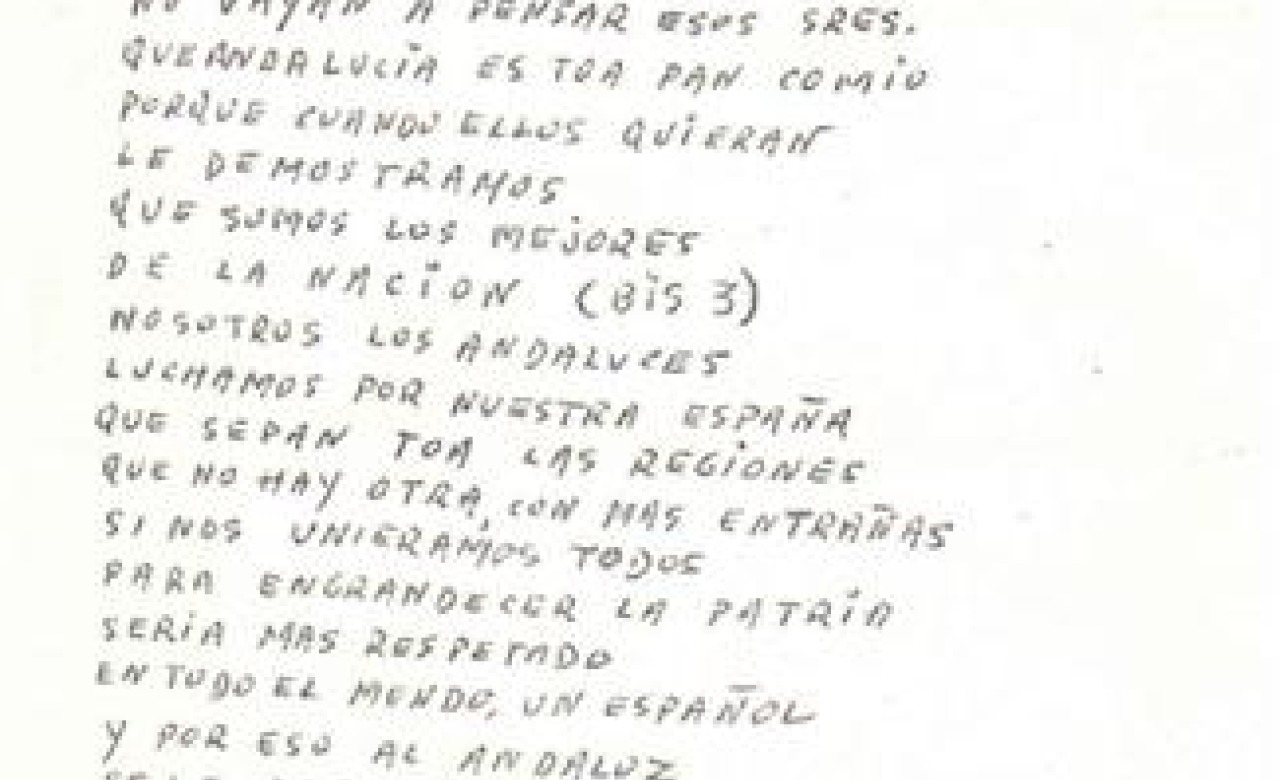 NO VAYAN A PENSAR ESOS SRES.
QUE ANDALUCIA ES TOA PAN COMIO
PORQUE CUANDO ELLOS QUIERAN
LE DEMOSTRAMOS
QUE SOMOS LOS MEJORES
DE LA NACION (BIS 3)
NOSOTROS LOS ANDALUCES
LUCHAMOS POR NUESTRA ESPAÑA
QUE SEPAN TOA LAS REGIONES
QUE NO HAY OTRA, CON MAS ENTRAÑAS
SI NOS UNIERAMOS TODOS
PARA ENGRANDECER LA PATRIA
SERIA MAS RESPETADO
EN TODO EL MENDO, UN ESPAÑOL
Y POR ESO AL ANDALUZ